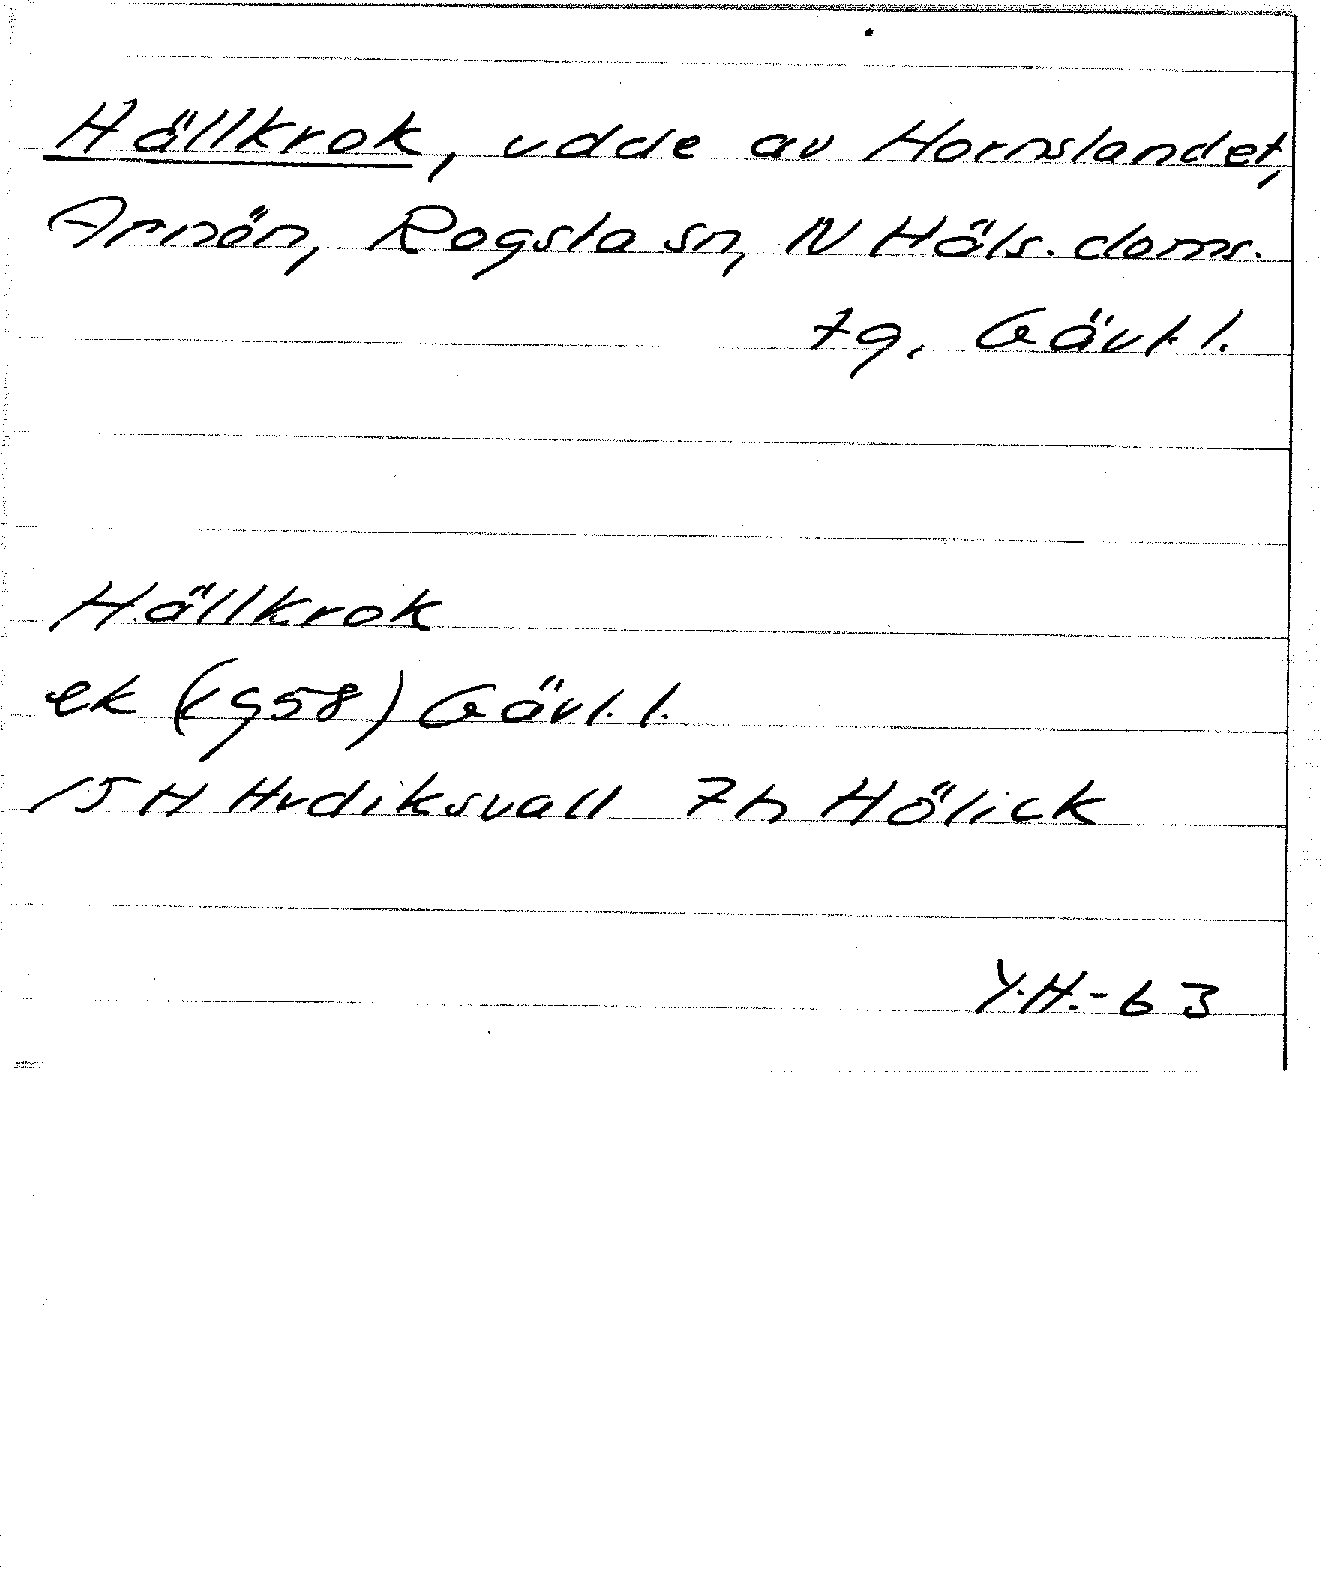 Hällkrok, udde av Hornslandet,
Arnön, Rogsta sn, N Häls. doms.
7g, Gävl. l.
Hällkrok
ek (1958) Gävl. l.
15 H Hudiksvall 7h Hölick
Y.H.-63